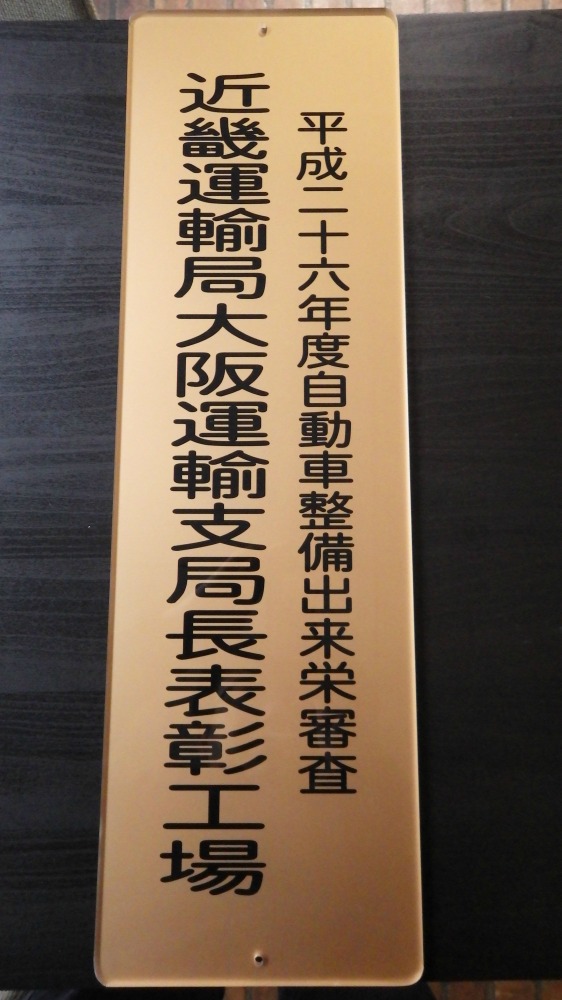 平成二十六年度自動車整備出来栄審査
近畿運輸局大阪運輸支局長表彰工場